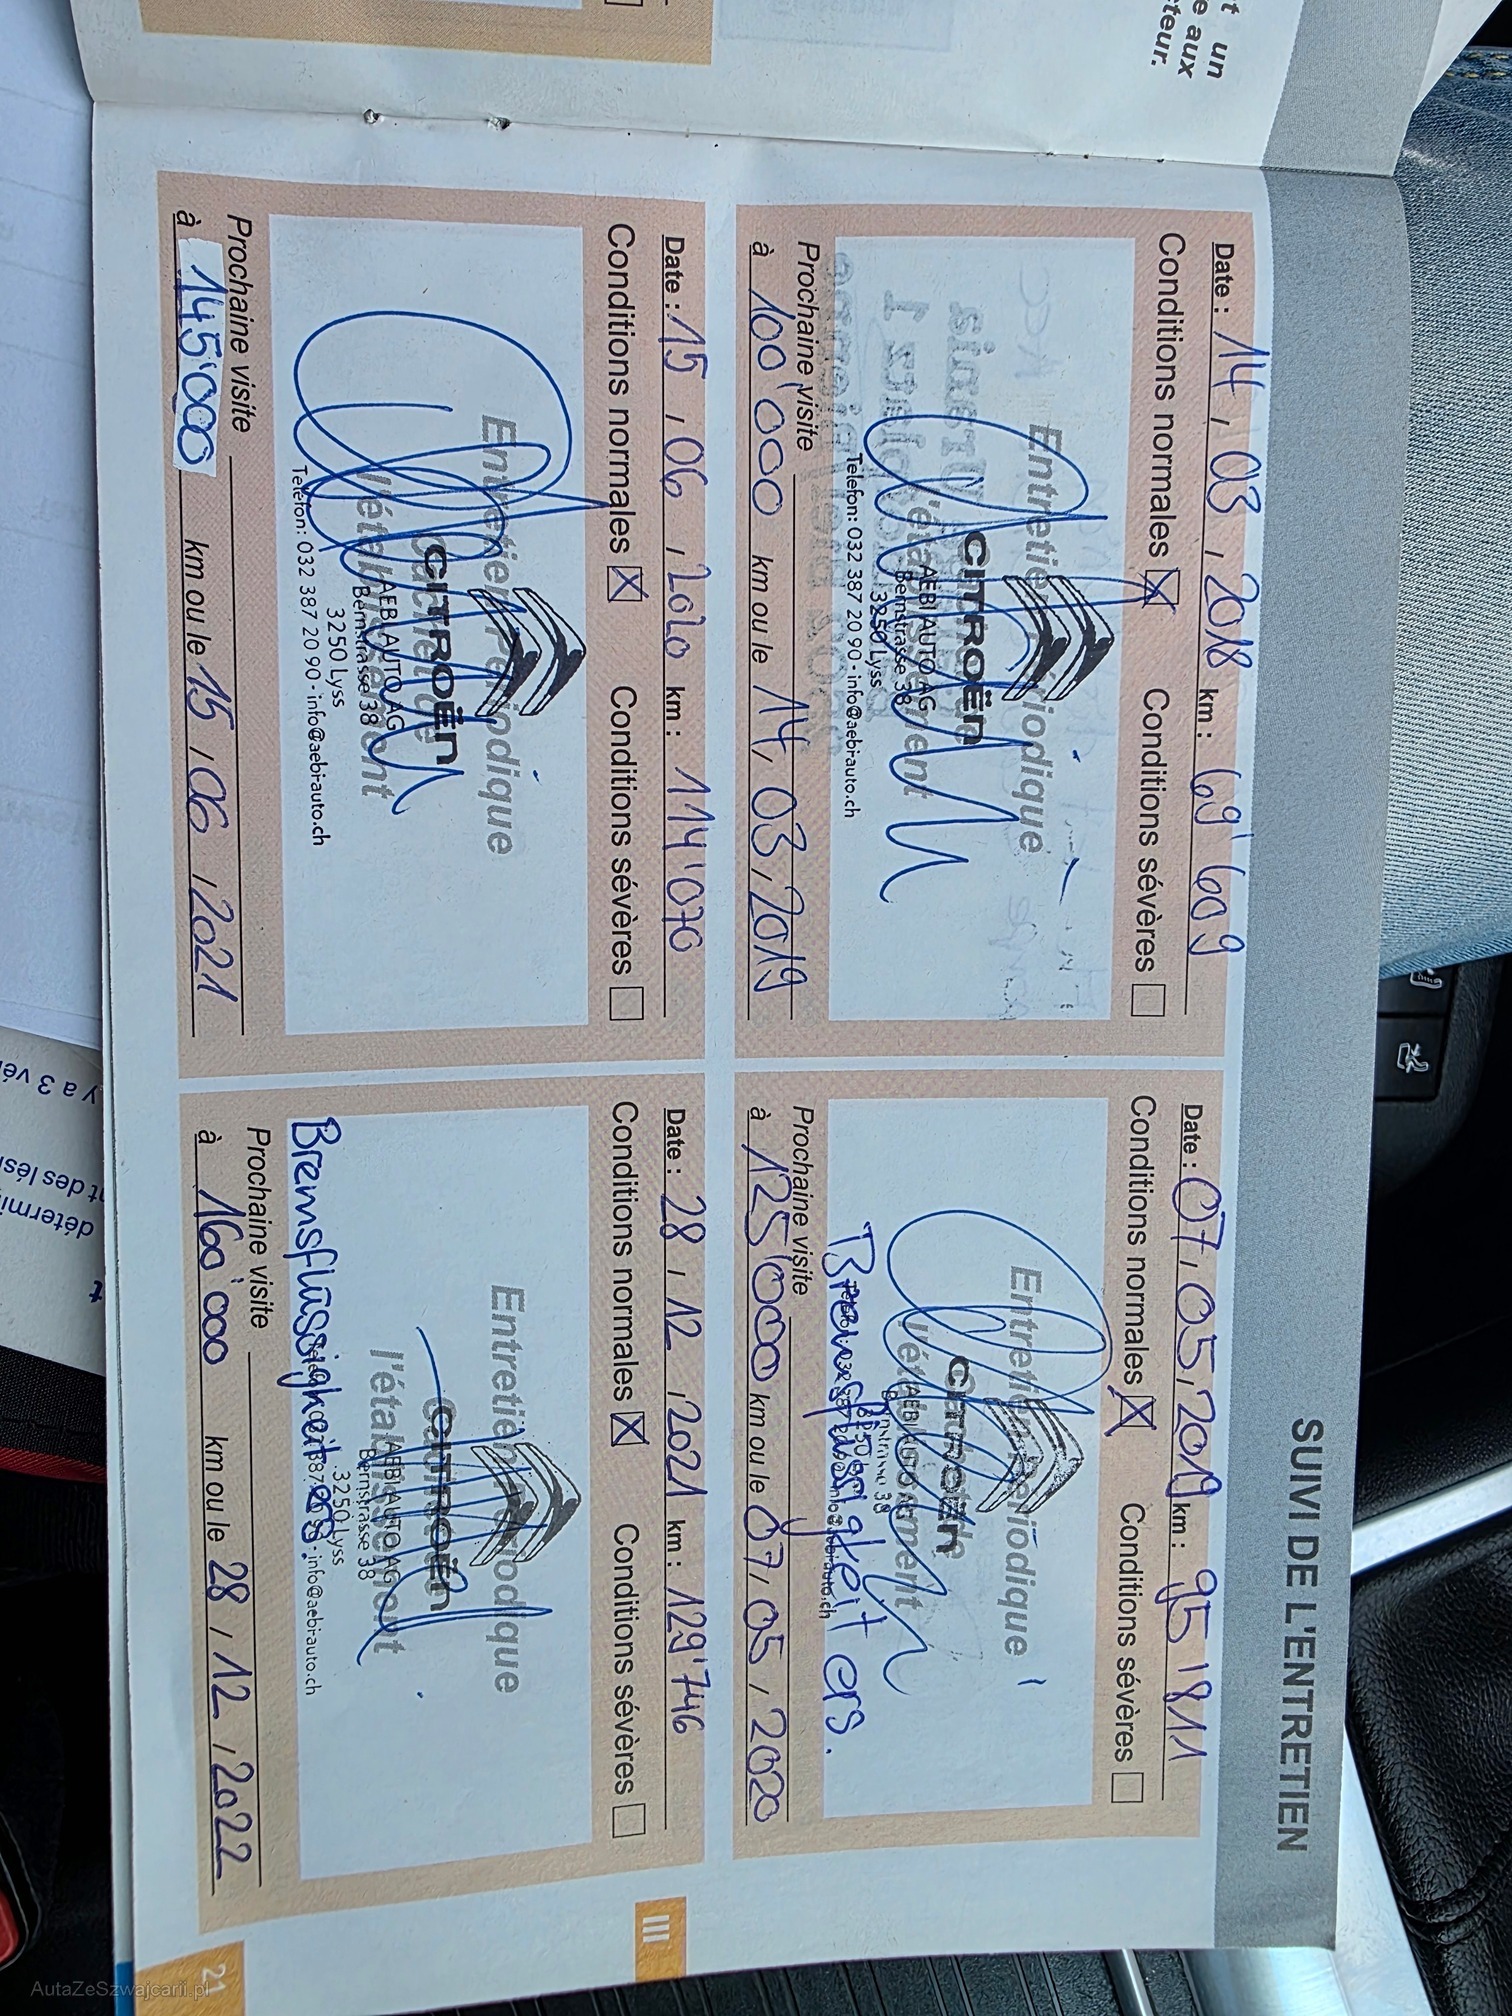 t un
e aux
cteur.
SUIVI DE L'ENTRETIEN
Date : 14, 03, 2018 km : 69'609
Conditions normales Conditions sévères
Entretien Périodique
CITROËN
l'établissement
AEBI AUTO AG
Bernstrasse 38
3250 Lyss
Telefon: 032 387 20 90 - info@aebiauto.ch
Prochaine visite
à 100'000 km ou le 14, 03, 2019
Date : 07, 05, 2019 km : 95'811
Conditions normales Conditions sévères
Entretien Périodique
CITROËN
l'établissement
AEBI AUTO AG
Bernstrasse 38
3250
Bremsflüssigkeit ers.
Prochaine visite
à 125'000 km ou le 07, 05, 2020
Date : 15, 06, 2020 km : 114'070
Conditions normales Conditions sévères
Entretien Périodique
CITROËN
l'établissement
AEBI AUTO AG
Bernstrasse 38
3250 Lyss
Telefon: 032 387 20 90 - info@aebiauto.ch
Prochaine visite
à 145'000 km ou le 15, 06, 2021
Date : 28, 12, 2021 km : 129'746
Conditions normales Conditions sévères
Entretien Périodique
CITROËN
l'établissement
AEBI AUTO AG
Bernstrasse 38
3250 Lyss
- info@aebiauto.ch
Bremsflüssigkeit ers.
Prochaine visite
à 160'000 km ou le 28, 12, 2022
III
21
y a 3 vé
t des lés
détermi
AutaZeSzwajcarii.pl